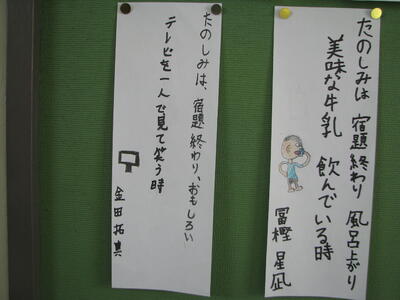 たのしみは 宿題終わり 風呂上がり
美味な牛乳 飲んでいる時
冨樫 星凪
たのしみは、宿題終わり、おもしろい
テレビを一人で見て笑う時
金田拓真